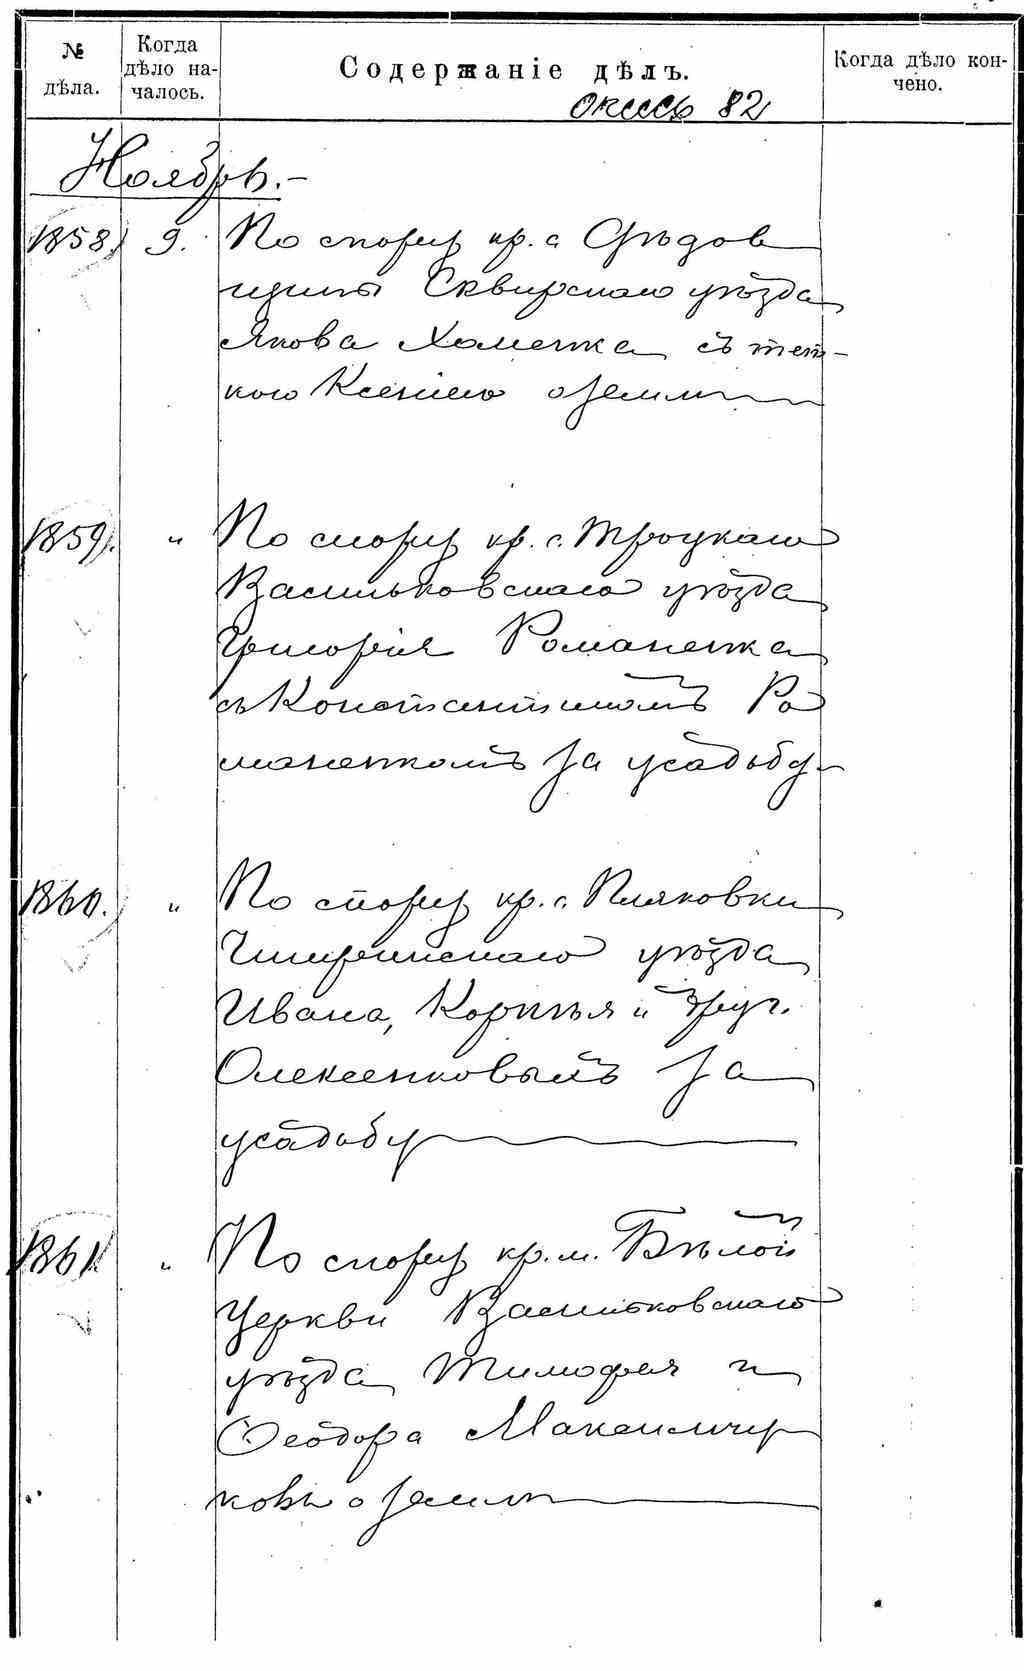 № дѣла.
Когда дѣло на-
чалось.
Содержаніе дѣлъ.
Когда дѣло кон-
чено.
опись 82
Ноябрь.-
1858. 9. По спору кр. с
Сквирскаго уѣзда
Якова Хоменка съ тет-
кою Ксеніею о земли
1859. " По спору кр. с. Троцкаго
Васильковскаго уѣзда
Григорія Романенка
съ Константиномъ Ро
маненкомъ за усадьбу
1860. " По спору кр. с. Пляковки
Чигиринскаго уѣзда
Ивана, Корнѣя и друг.
Олексенковымъ за
усадьбу
1861. " По спору кр. м. Бѣлой
Церкви Васильковскаго
уѣзда Тимофея и
Ѳеодора Максимчу
ковъ о земли